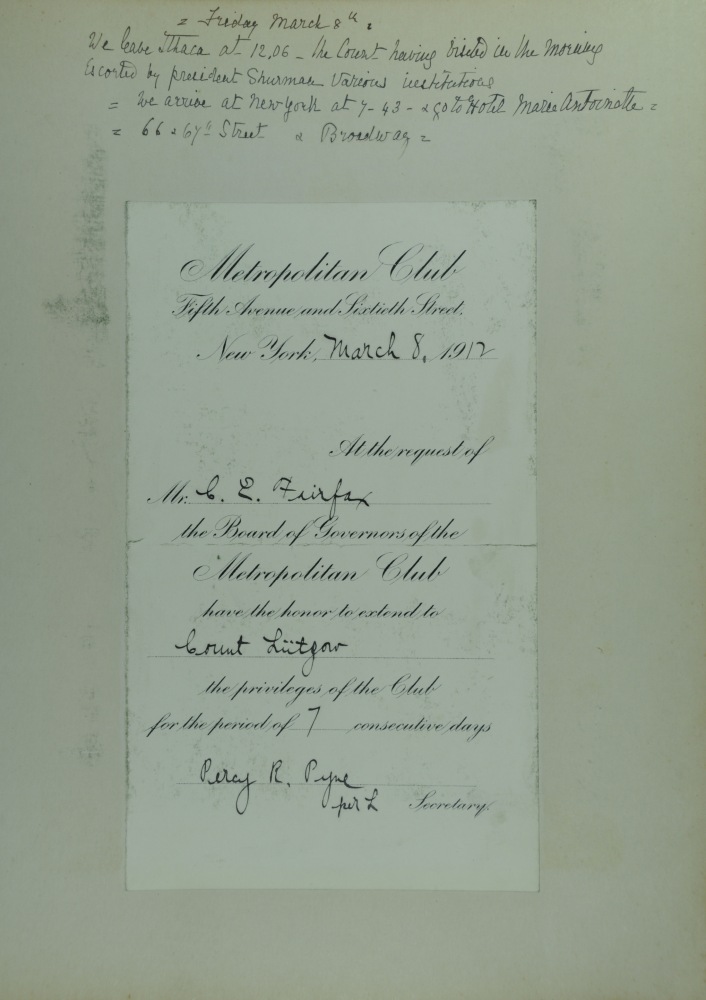 = Friday March 8th =
We leave Ithaca at 12,06 - the Count having visited in the morning
Escorted by president Shurman various institutions
= We arrive at New York at 7-43 - & go to Hotel Marie Antoinette =
= 66 & 67th Street & Broadway =
Metropolitan Club
Fifth Avenue and Sixtieth Street.
New York, March 8, 1912
At the request of
Mr. C. L. Fairfax
the Board of Governors of the
Metropolitan Club
have the honor to extend to
Count Lützow
the privileges of the Club
for the period of 7 consecutive days
Percy R. Pyne
per L Secretary.